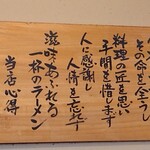 その命を全うし
料理の匠を思い
手間を惜します
人に感謝し
人情を忘れず
滋味あふれる
一杯のラーメン
当店心得